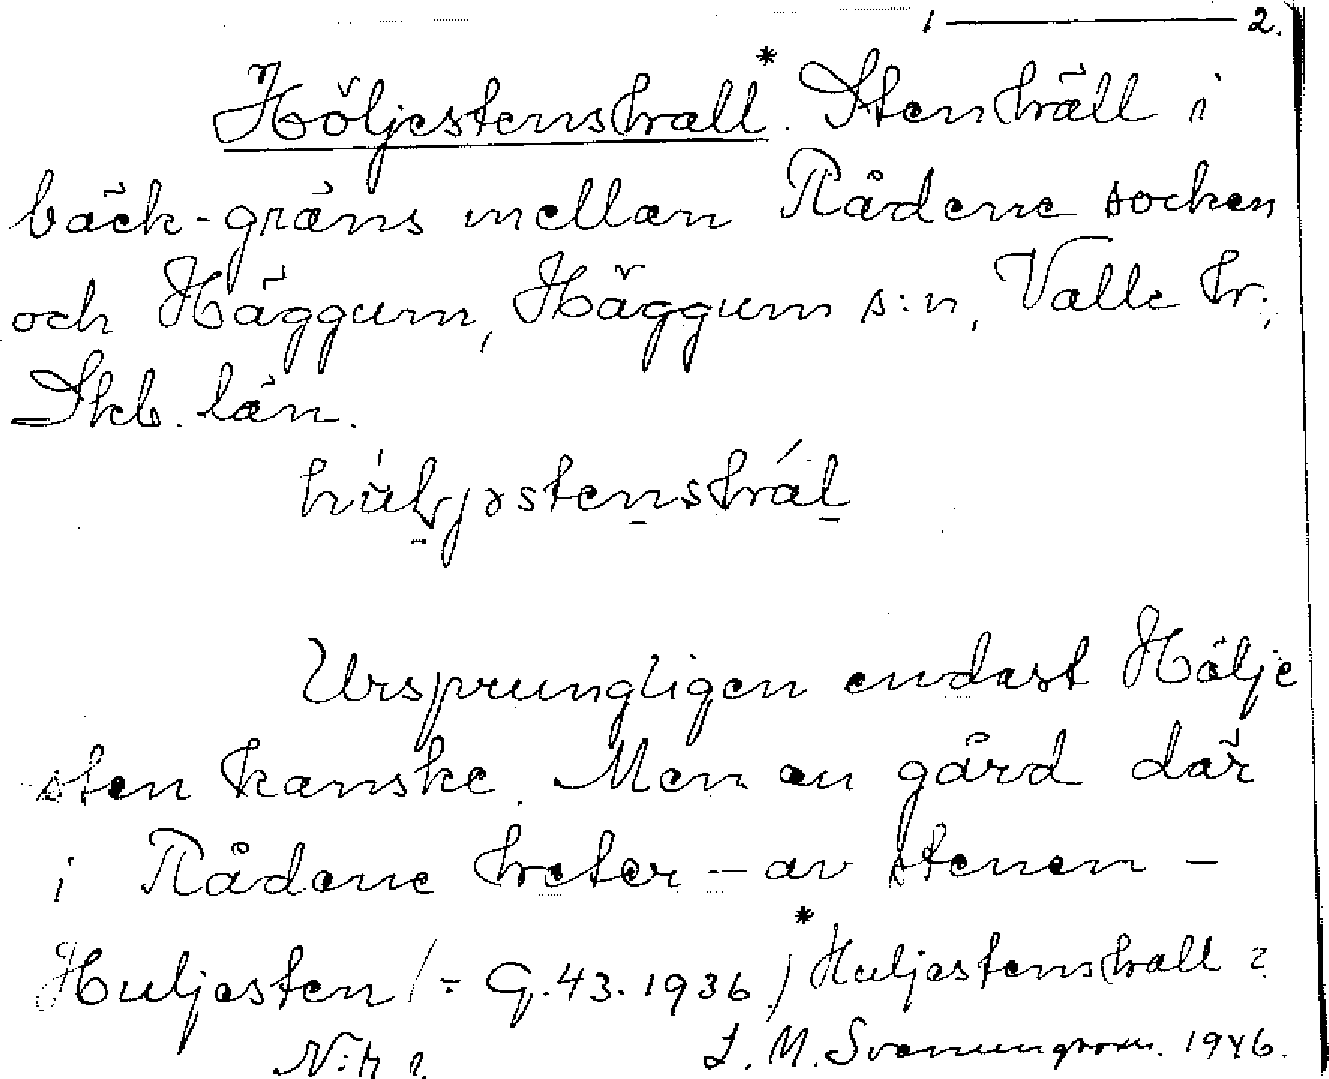 1 — 2.
Höljestenshall*. Stenhäll i
bäck-gräns mellan Rådene socken
och Häggum, Häggum s:n, Valle hr.,
Skb. län.
Ursprungligen endast Hölje
sten kanske. Men en gård där
i Rådene heter – av stenen –
Huljesten (= G. 43. 1936.) *Huljestenshall?
N:r 2. L. M. Svenungsson. 1946.